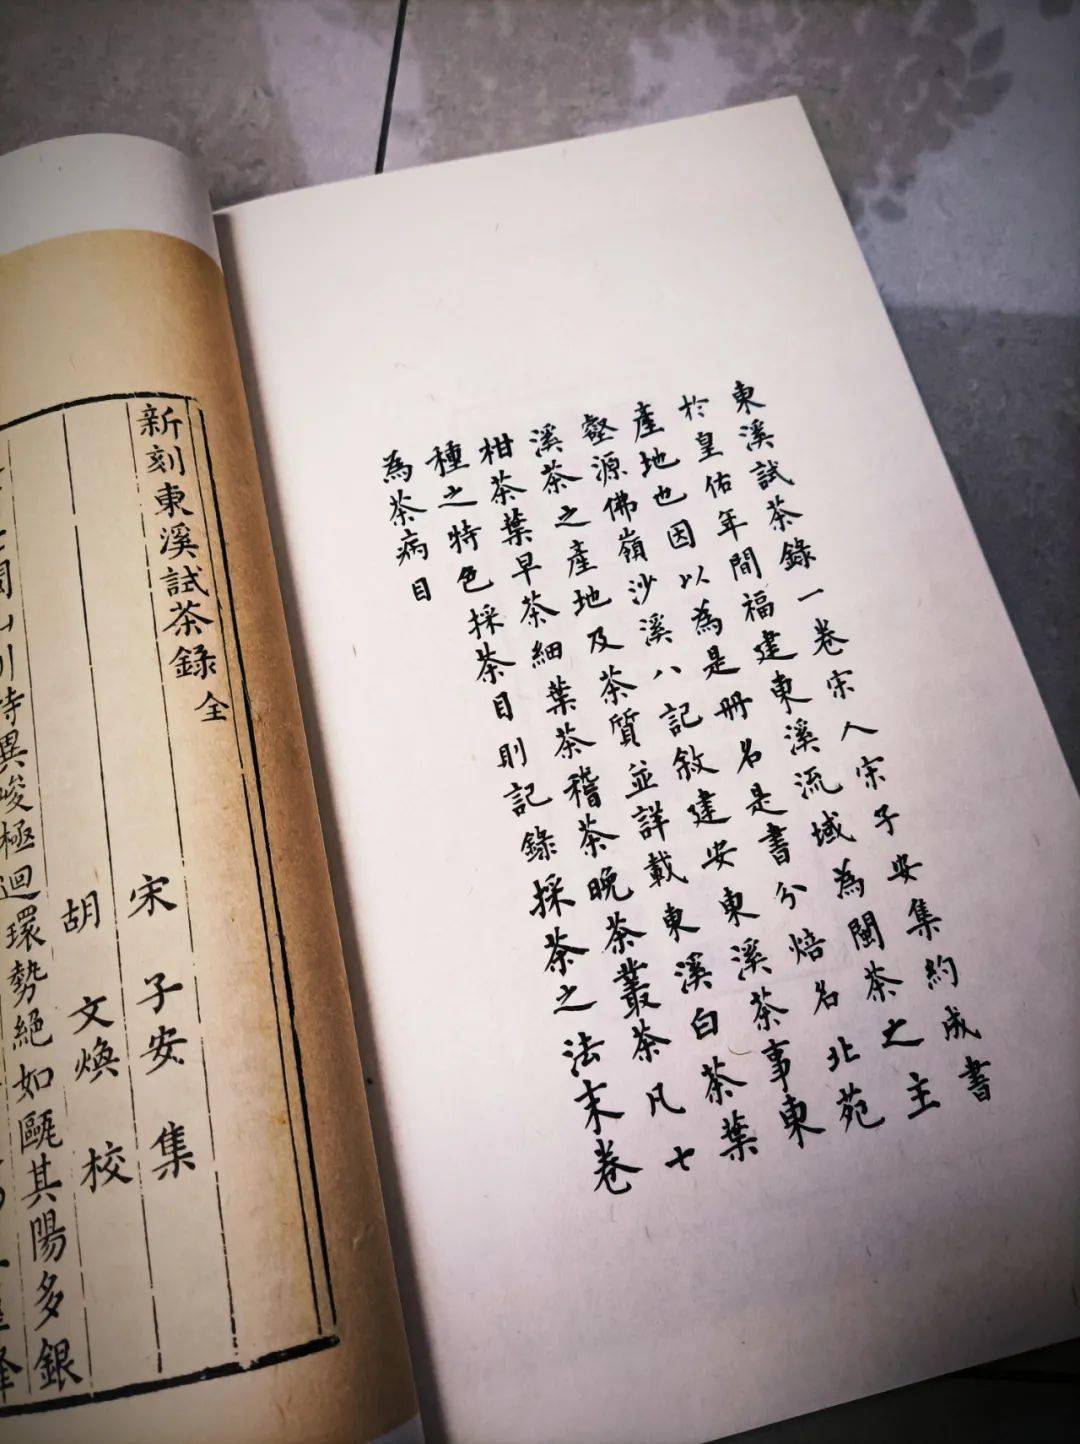 東溪試茶錄一卷宋人宋子安集約成書
於皇佑年間福建東溪流域為閩茶之主
產地也因以為是冊名是書分焙名北苑
壑源佛嶺沙溪八記敘建安東溪茶事東
溪茶之產地及茶質並詳載東溪白茶葉
柑茶葉早茶細葉茶稽茶晚茶叢茶凡七
種之特色採茶目則記錄採茶之法末卷
為茶病目
新刻東溪試茶錄全
宋子安集
胡文煥校
閩山川特異峻極迴環勢絕如甌其陽多銀